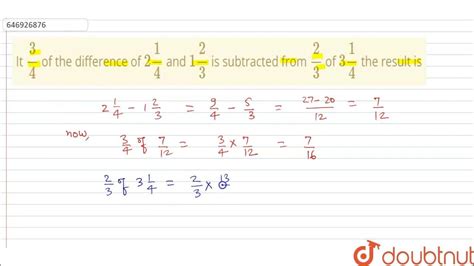 646926876
It 3/4 of the difference of 2 1/4 and 1 2/3 is subtracted from 2/3 of 3 1/4 the result is
2 1/4 - 1 2/3 = 9/4 - 5/3 = 27-20/12 = 7/12
now,
3/4 of 7/12 = 3/4 x 7/12 = 7/16
2/3 of 3 1/4 = 2/3 x 13
doubtnut